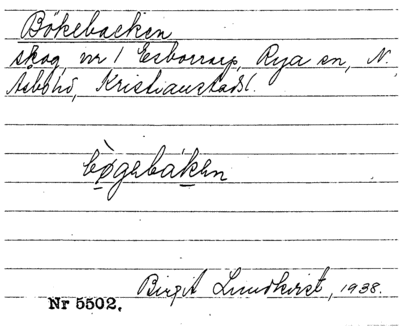 Bökebacken
skog, nr 1 Esborrarp, Rya sn, N.
Åsbo hd, Kristianstads l.
bø̀gebákǝn
Birgit Lundkvist, 1938.
Nr 5502.